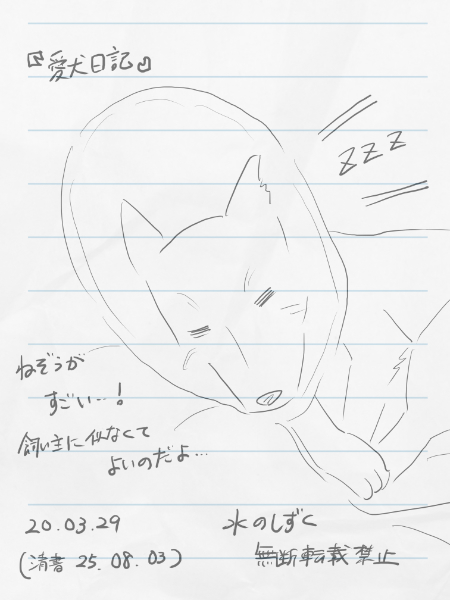 『愛犬日記』
zzz
ねぞうが
すごい…!
飼い主に似なくて
よいのだよ…
20.03.29
(清書 25.08.03)
水のしずく
無断転載禁止